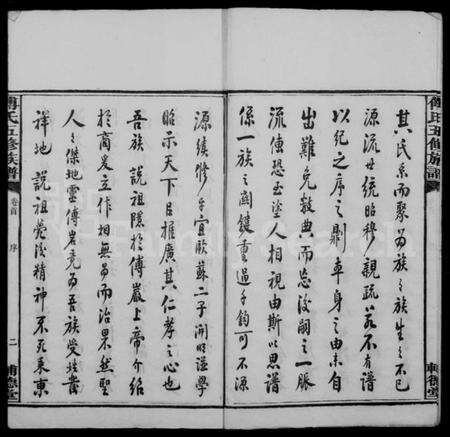 其氏系而聚為族之族生之不已
源流世統昭穆親疏若不有譜
以紀之序之則本身之由來自
出難免數典而忘沒嗣之一脈
流傳恐至塗人相視由斯以思譜
係一族之關鍵重過千鈞可不源
源續修乎宜歐蘇二子淵明譜學
昭示天下臣推廣其仁孝之心也
吾族說祖隱於傅巖上帝介紹
於商爰立作相無而治果然聖
人之傑地靈傳岩竟為吾族受發
祥地說祖发後精神不死乘東
傅氏五修族譜
卷首
序
二
傅氏五修族譜